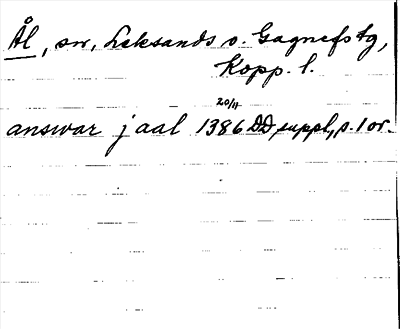 Ål, sn, Leksands o. Gagnefs tg,
Kopp. l.
answar j aal 1386 20/11 DD suppl, s. 1 or.